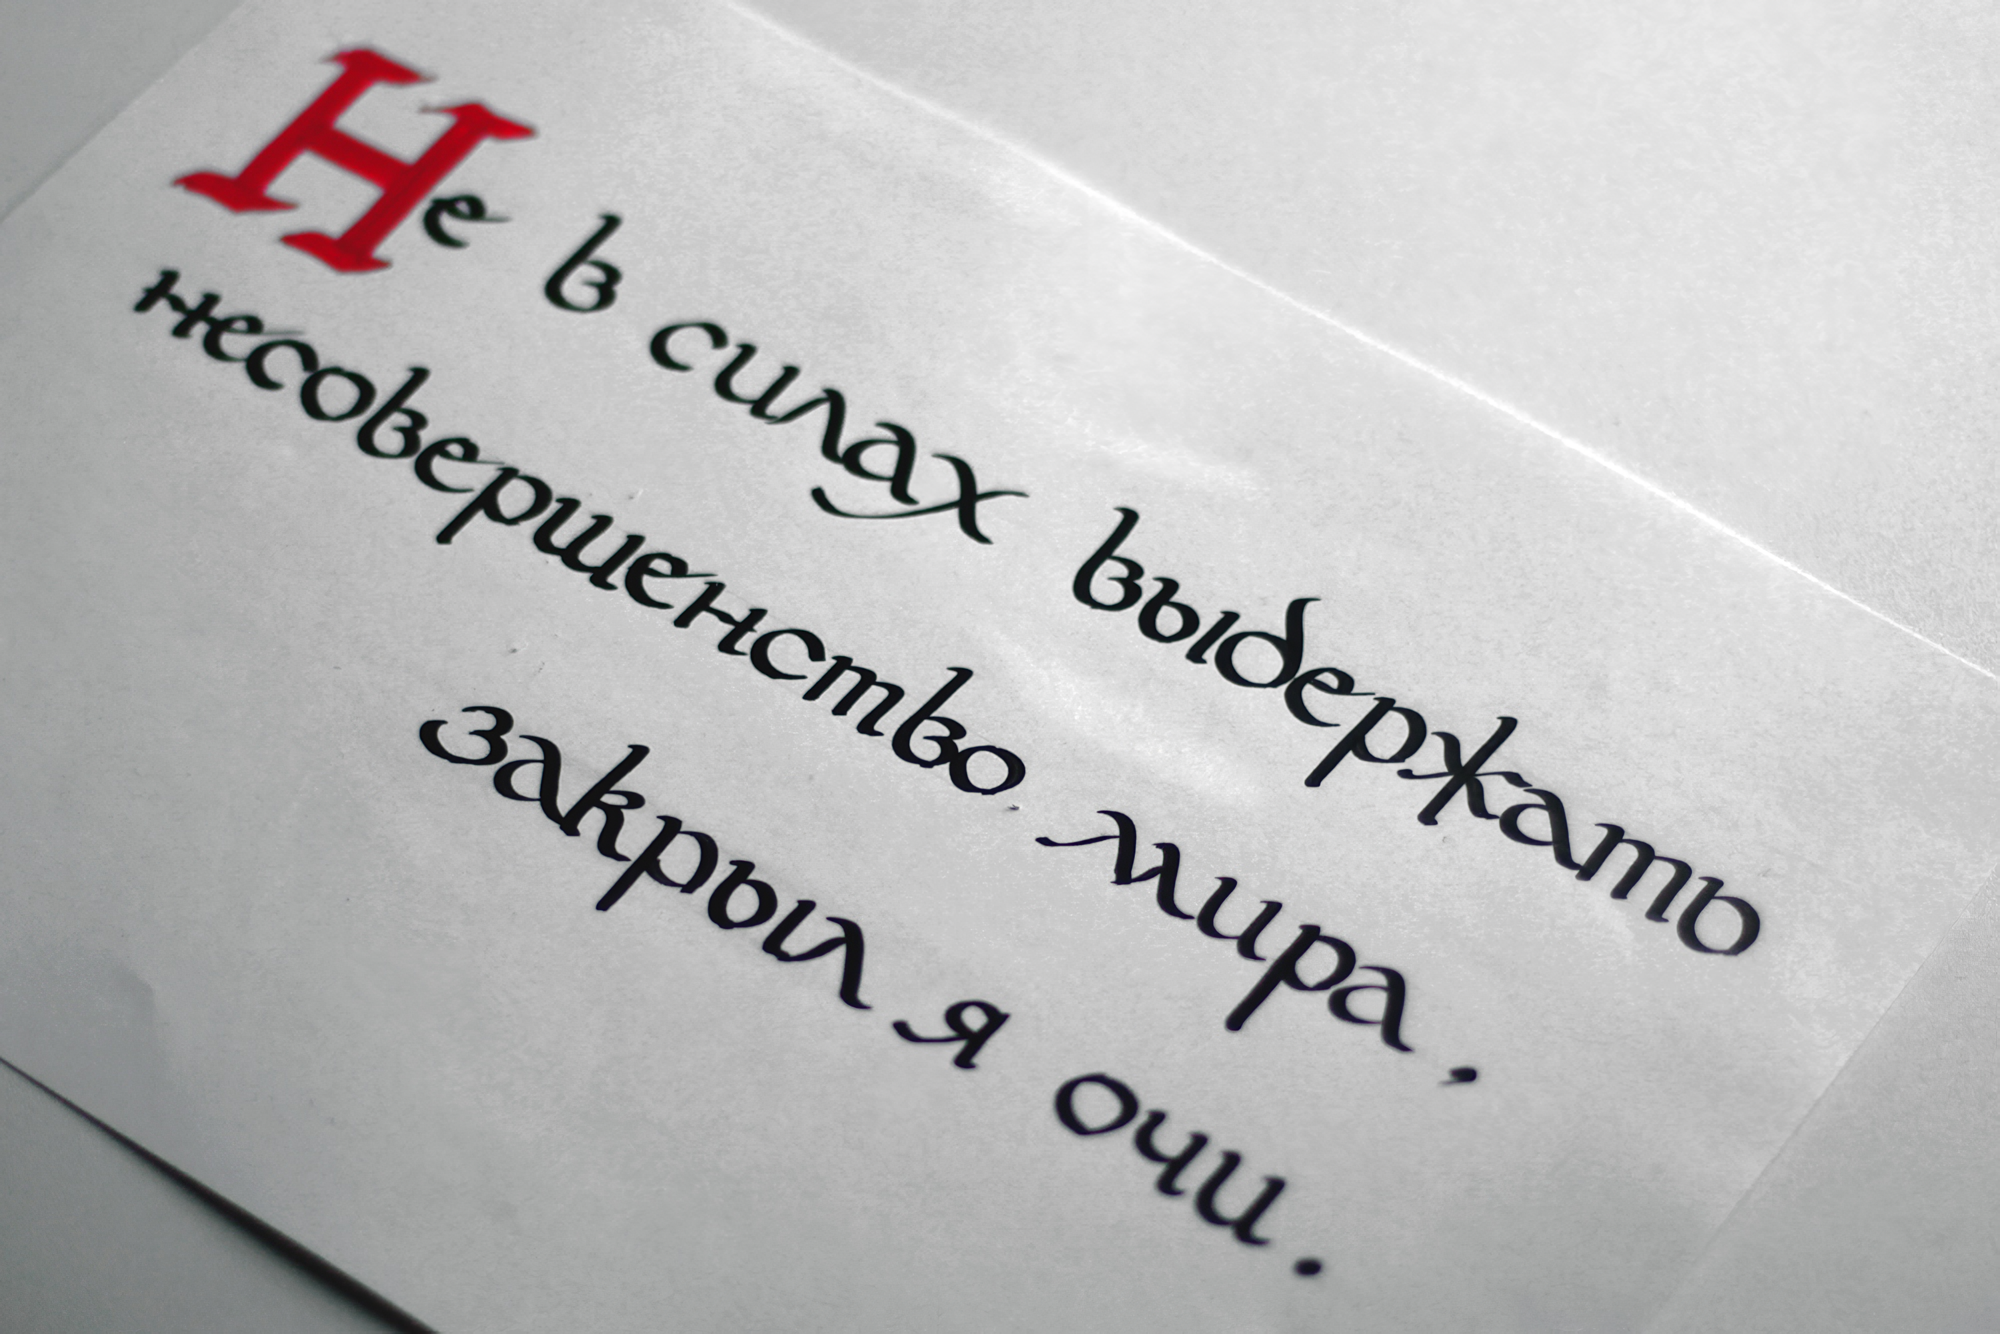 Не в силах выдержать
несовершенство мира,
закрыл я очи.